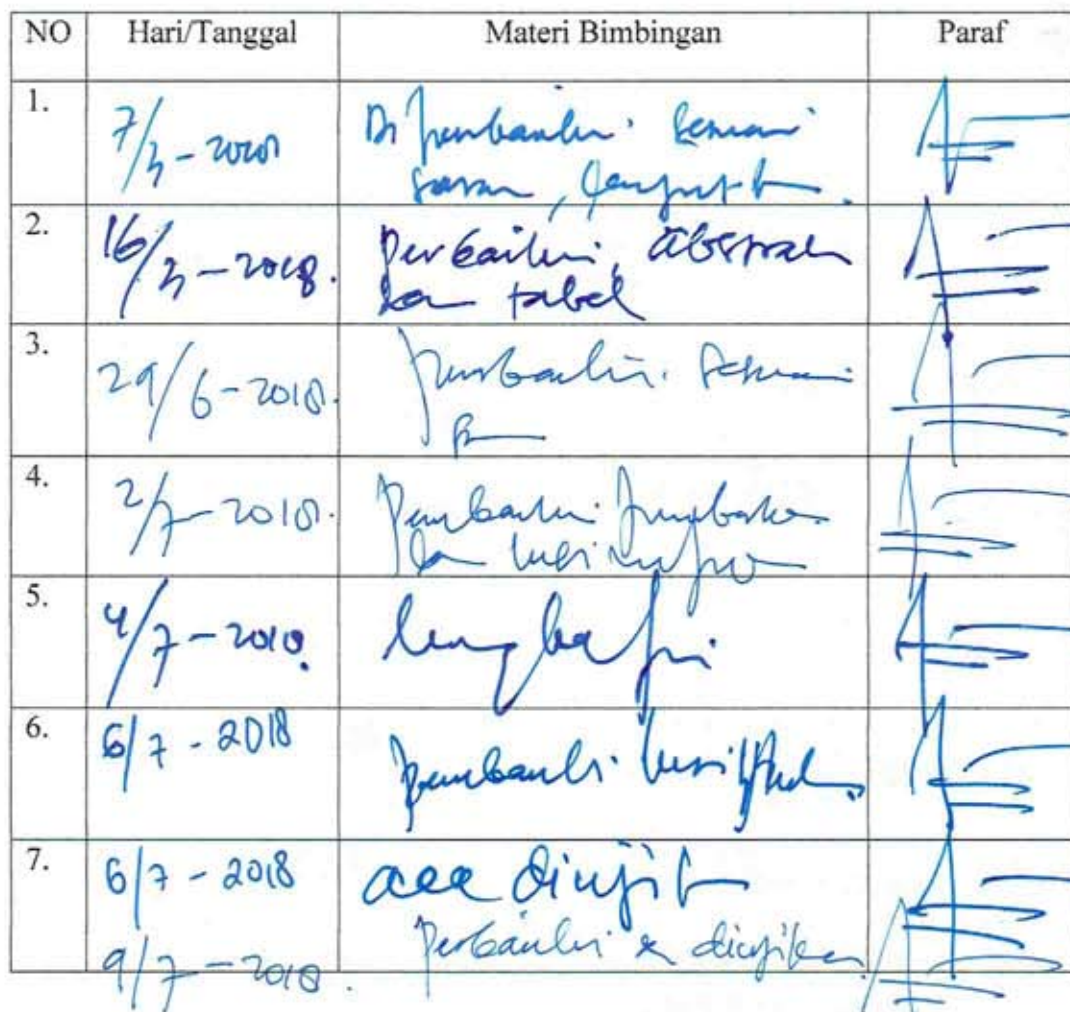 NO Hari/Tanggal Materi Bimbingan Paraf
1. 7/3-2018 Di perbaiki sesuai
saran,
2. 16/3-2018. Perbaiki, abstrak
dan tabel
3. 29/6-2018. perbaiki sesuai
4. 2/7-2018. Perbaiki
dan
5. 4/7-2018. lengkapi
6. 6/7-2018 perbaiki
7. 6/7-2018 acc diujik
9/7-2018. Perbaiki & diujikan